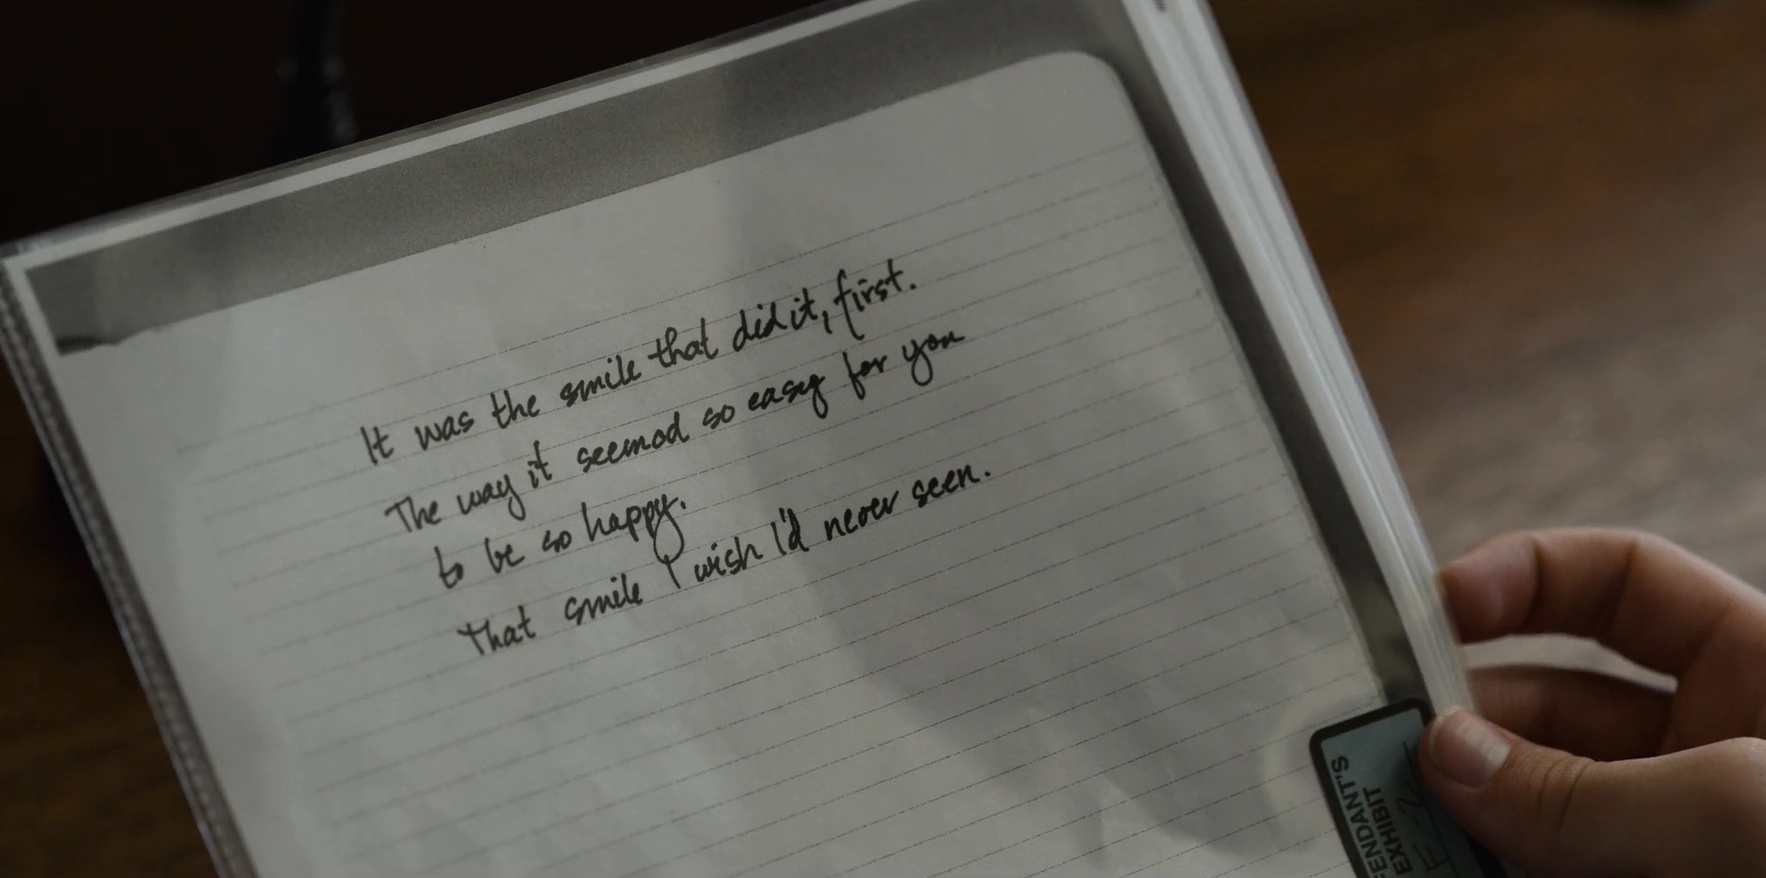 It was the smile that did it, first.
The way it seemed so easy for you
to be so happy.
That smile I wish I'd never seen.
EXHIBIT